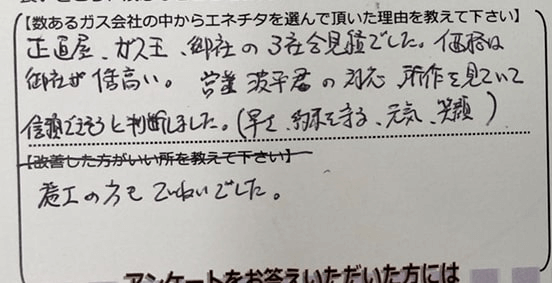 【数あるガス会社の中からエネチタを選んで頂いた理由を教えて下さい】
正直屋、ガス王、御社の3社合見積でした。価格は
御社が1番高い。営業 波平君の対応、所作を見ていて
信頼できそうと判断しました。(早さ、約束を守る、元気、笑顔)
【改善した方がいい所を教えて下さい】
施工の方もていねいでした。
アンケートをお答えいただいた方には